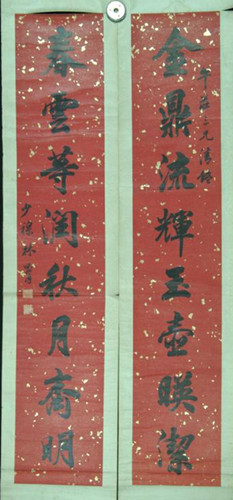 金鼎流輝玉壺暎潔
春雲等潤秋月齊明